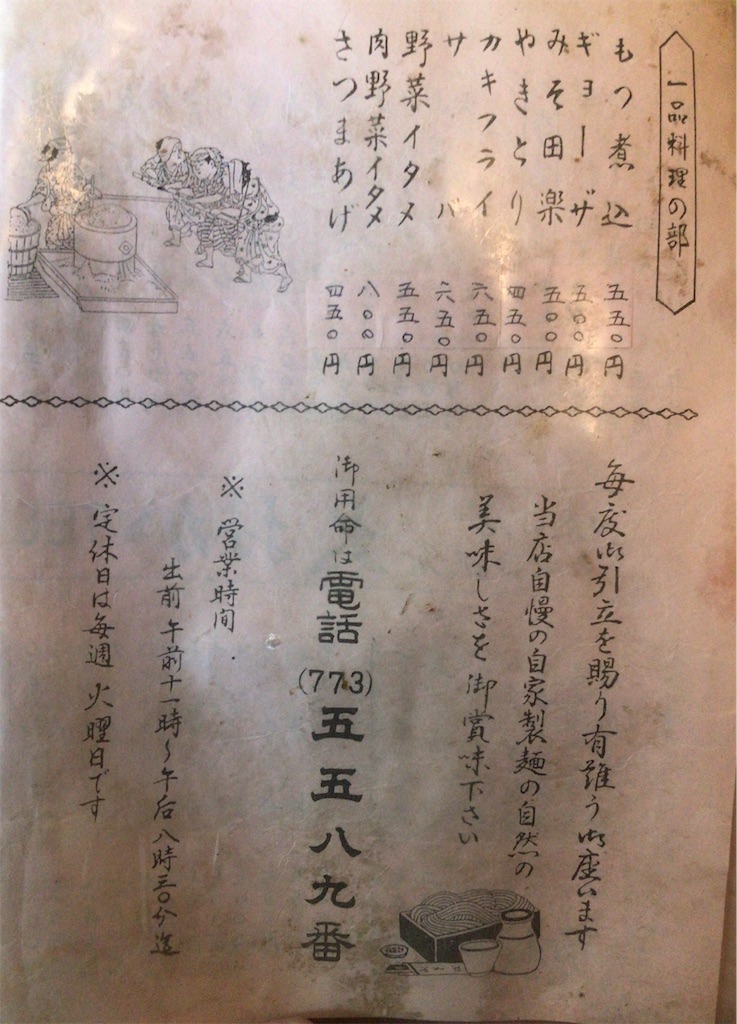 一品料理の部
もつ煮込 五五〇円
ギョーザ 五〇〇円
みそ田楽 五〇〇円
やきとり 四五〇円
カキフライ 六五〇円
サバ 六五〇円
野菜イタメ 五五〇円
肉野菜イタメ 八〇〇円
さつまあげ 四五〇円
毎度御引立を賜り有難う御座います
当店自慢の自家製麺の自然の
美味しさを御賞味下さい
御用命は電話(773)五五八九番
※営業時間
出前 午前十一時〜午后八時三〇分迄
※定休日は毎週 火曜日です